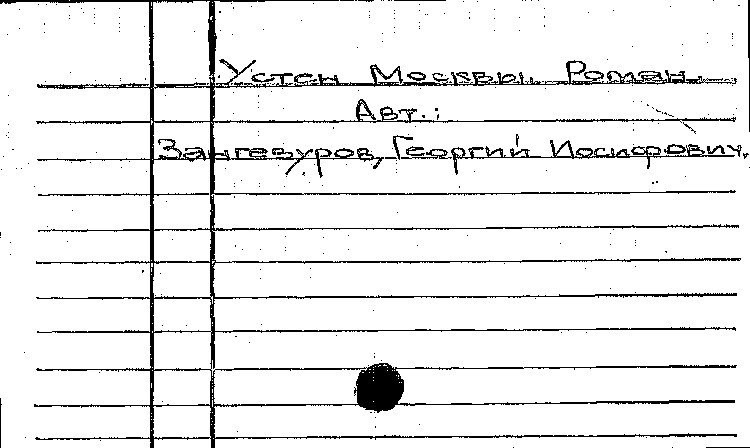 У стен Москвы. Роман.
Авт.:
Зангезуров, Георгий Иосифович.